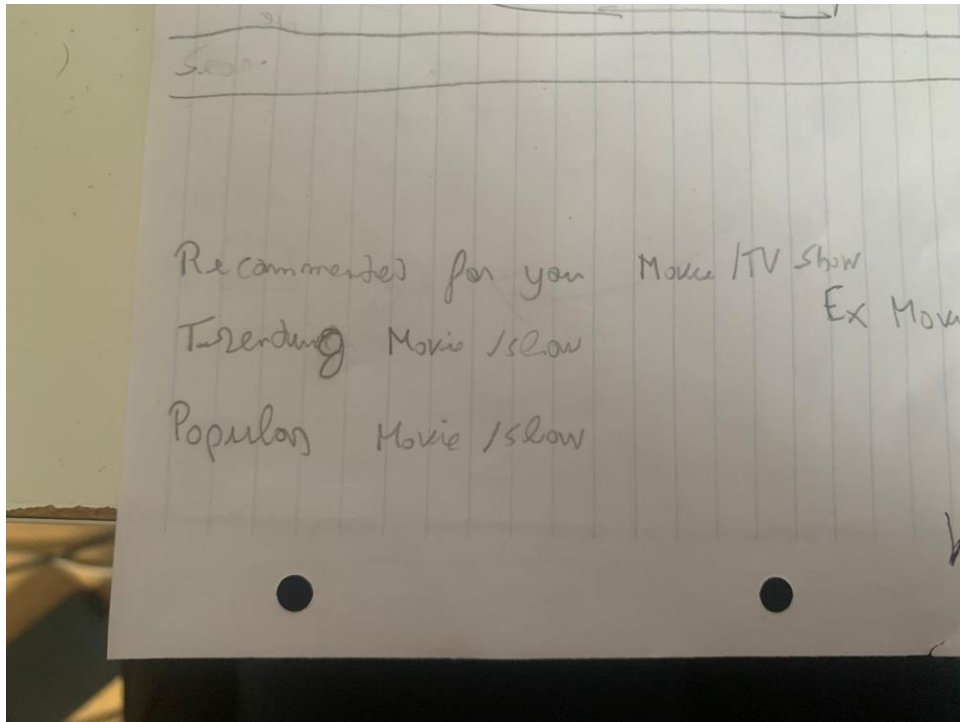 Recommented for you Movie /TV Show
Ex Movi
Trending Movie /show
Popular Movie /show